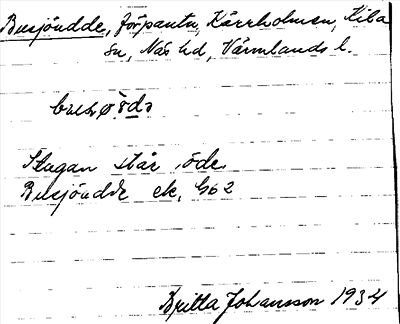 Busjöudde, förpantn, Kärrholmen, Kila
sn, Näs hd, Värmlands l.
Stugan står öde.
Busjöudde ek. bl. 62
Britta Johansson 1934